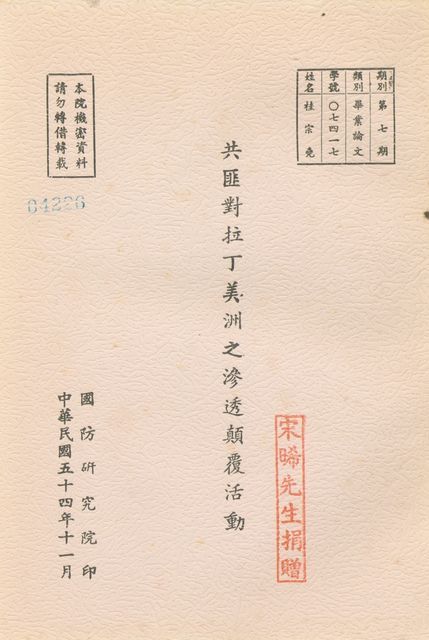 期別 第七期
類別 畢業論文
學號 〇七四一七
姓名 桂宗
宋晞先生捐贈
共匪對拉丁美洲之滲透顛覆活動
本院機密資料
請勿轉借轉載
64226
國防研究院印
中華民國五十四年十一月